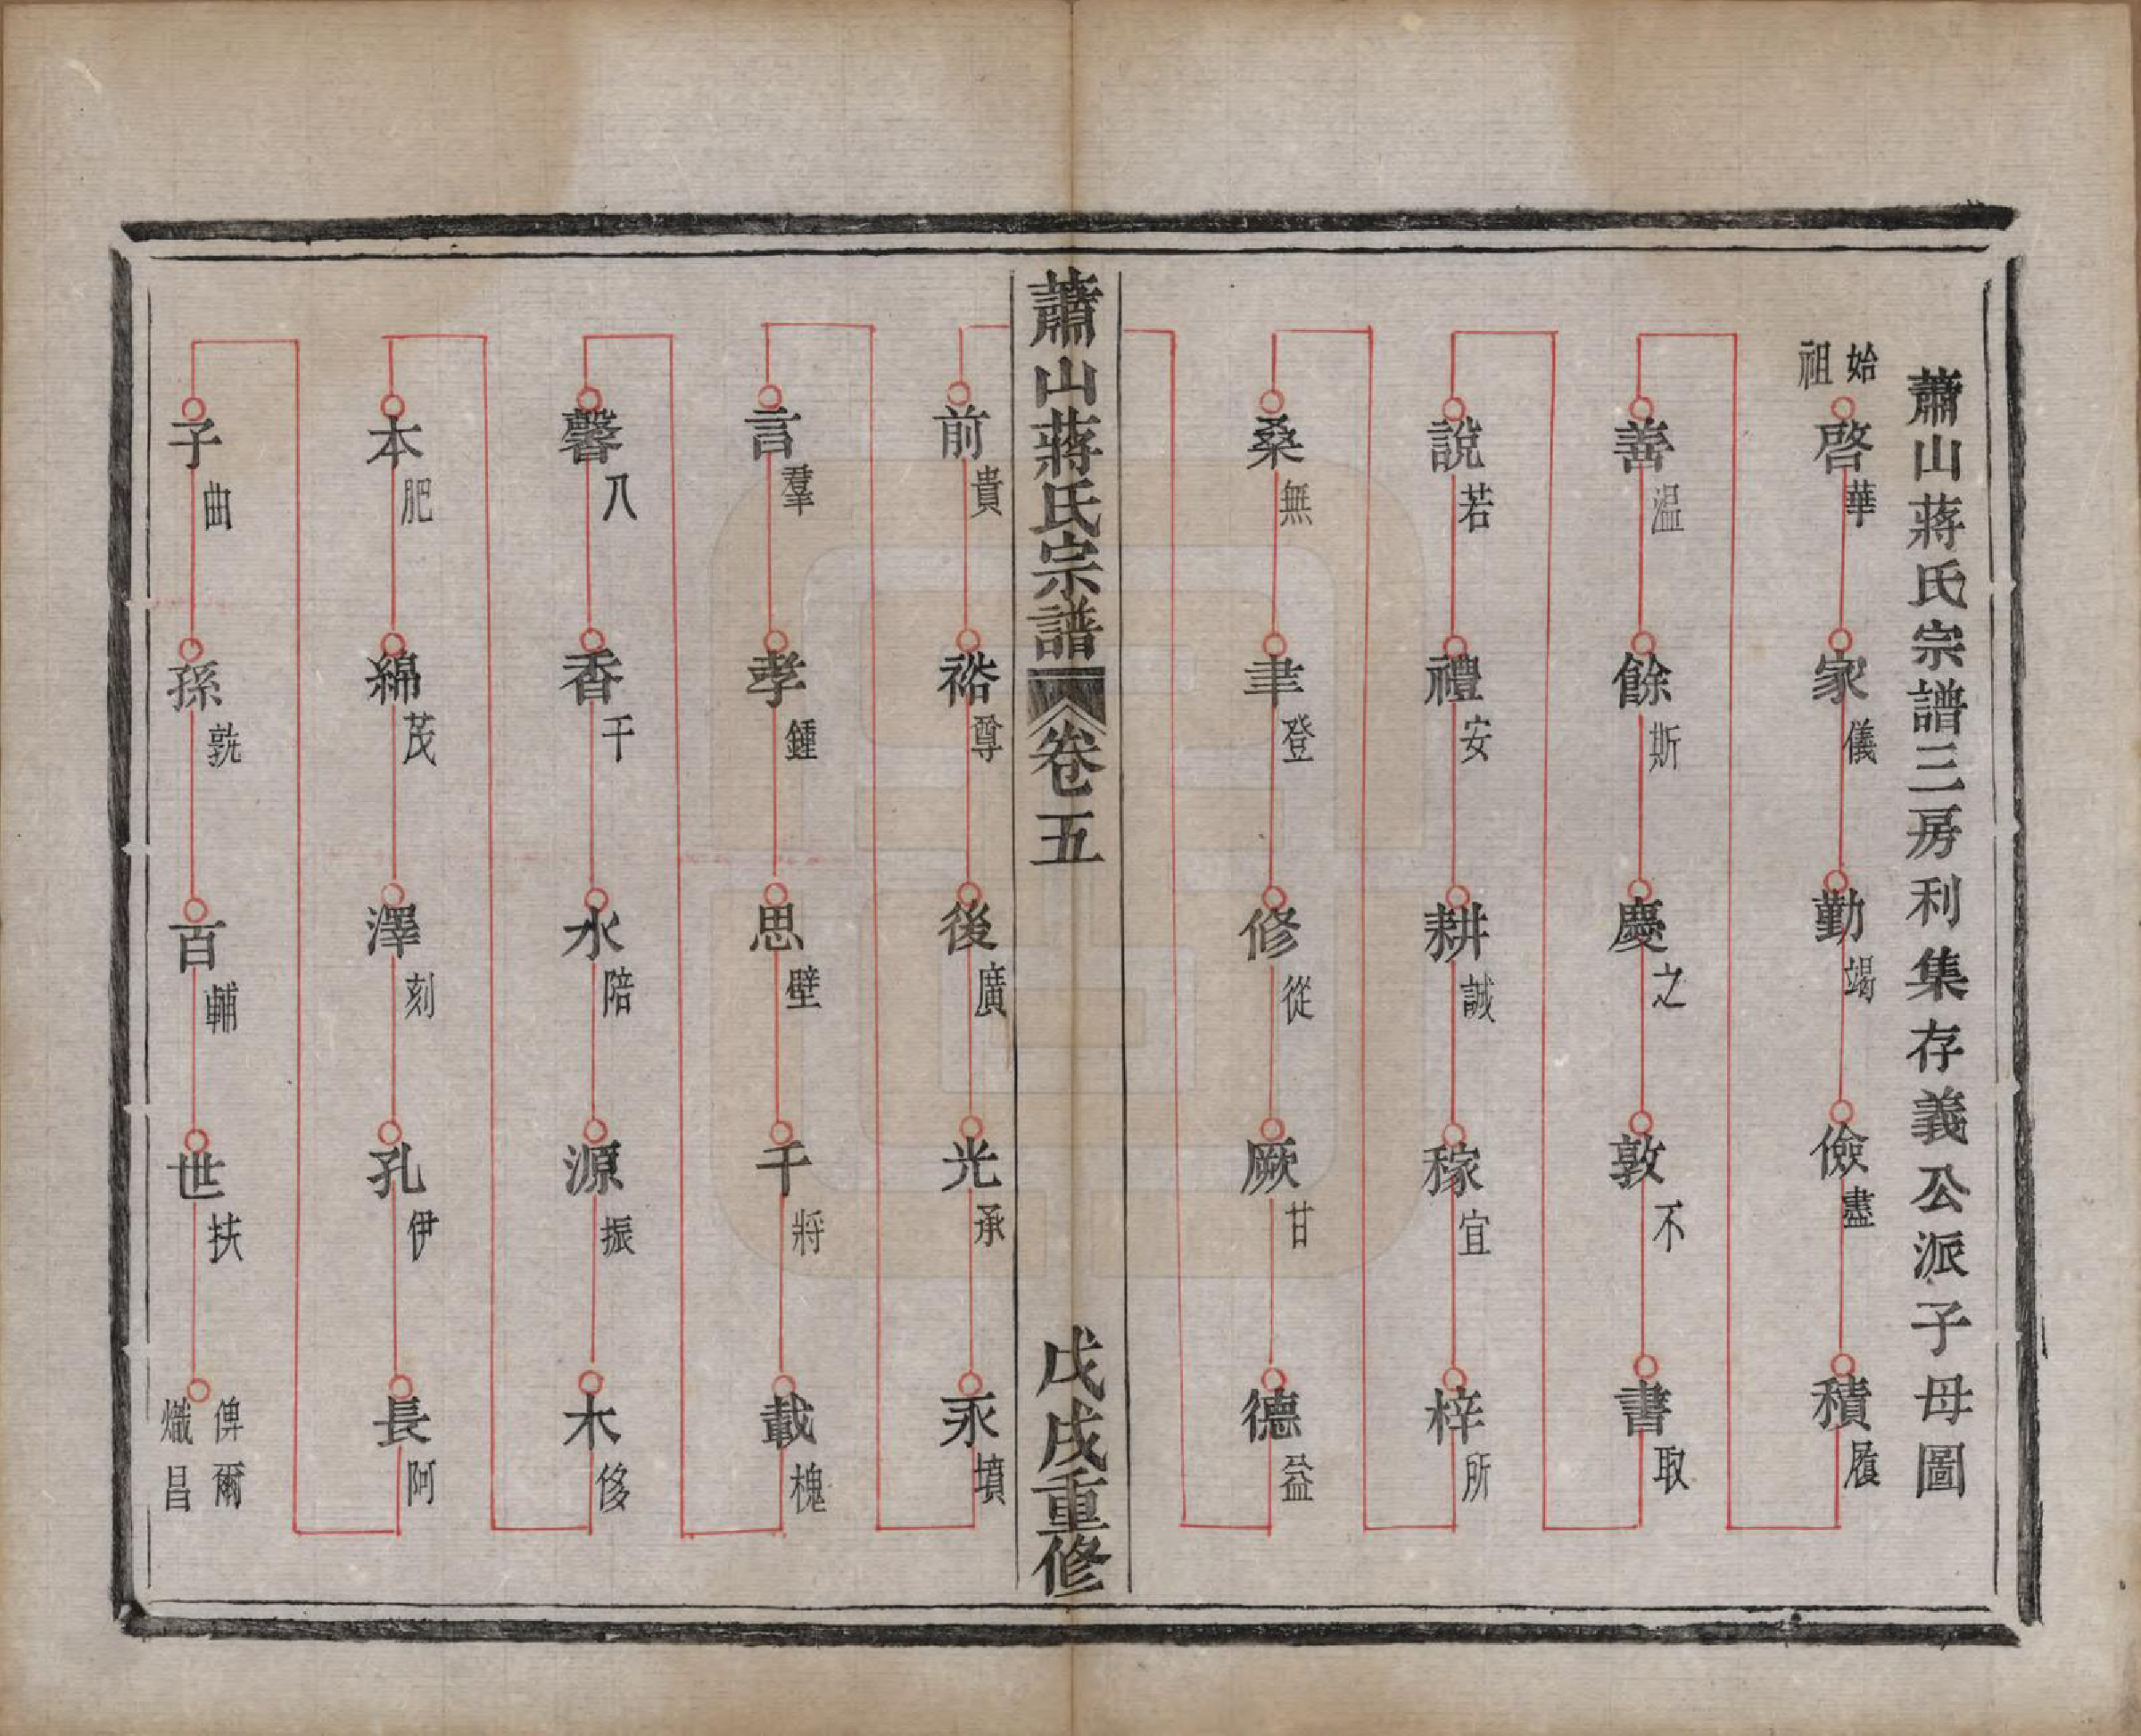 蕭山蔣氏宗譜三房利集存義公派子母圖
始祖
啓華 家儀 勤竭 儉盡 積履
善温 餘斯 慶之 敦不 書取
說若 禮安 耕誠 稼宜 梓所
桑無 聿登 修從 厥甘 德益
蕭山蔣氏宗譜 卷五 戊戌重修
前貴 裕尊 後廣 光承 永墳
言羣 孝鍾 思壁 千將 載槐
馨八 香干 水陪 源振 木侈
本肥 綿茂 澤刻 孔伊 長阿
子曲 孫孰 百輔 世扶 俾爾熾昌